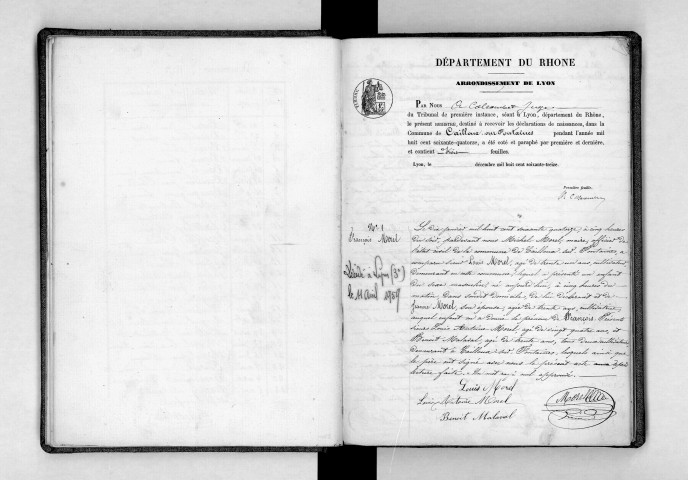 DÉPARTEMENT DU RHONE
ARRONDISSEMENT DE LYON
PAR NOUS
du Tribunal de première instance, séant à Lyon, département du Rhône,
le présent registre, destiné à recevoir les déclarations de naissances, dans la
Commune de Cailloux sur Fontaines pendant l'année mil
huit cent soixante-quatorze, a été coté et paraphé par première et dernière,
et contient feuilles.
Lyon, le décembre mil huit cent soixante-treize.
Première feuille.
N° 1
François Morel
Décédé à Lyon (3e)
le 11 Avril 1957
Le dix janvier mil huit cent soixante quatorze, à cinq heures
du soir, pardevant nous Michel Morel, maire, officier de
l'état civil de la commune de Cailloux sur Fontaines, a
comparu Louis Morel, âgé de trente ans, cultivateur
demeurant en cette commune, lequel a présenté un enfant
du sexe masculin, né aujourd'hui, à cinq heures du
matin, dans son domicile, de lui déclarant et de
Morel, son épouse, âgée de trente ans,
auquel enfant il a donné le prénom de François. Présents
Louis Antoine Morel, âgé de vingt quatre ans, et
Benoit Malaval, âgé de trente ans, tous deux cultivateurs
demeurant à Cailloux sur Fontaines, lesquels ainsi que
le père ont signé avec nous le présent acte après
lecture faite.
Louis Morel
Louis Antoine Morel
Benoit Malaval